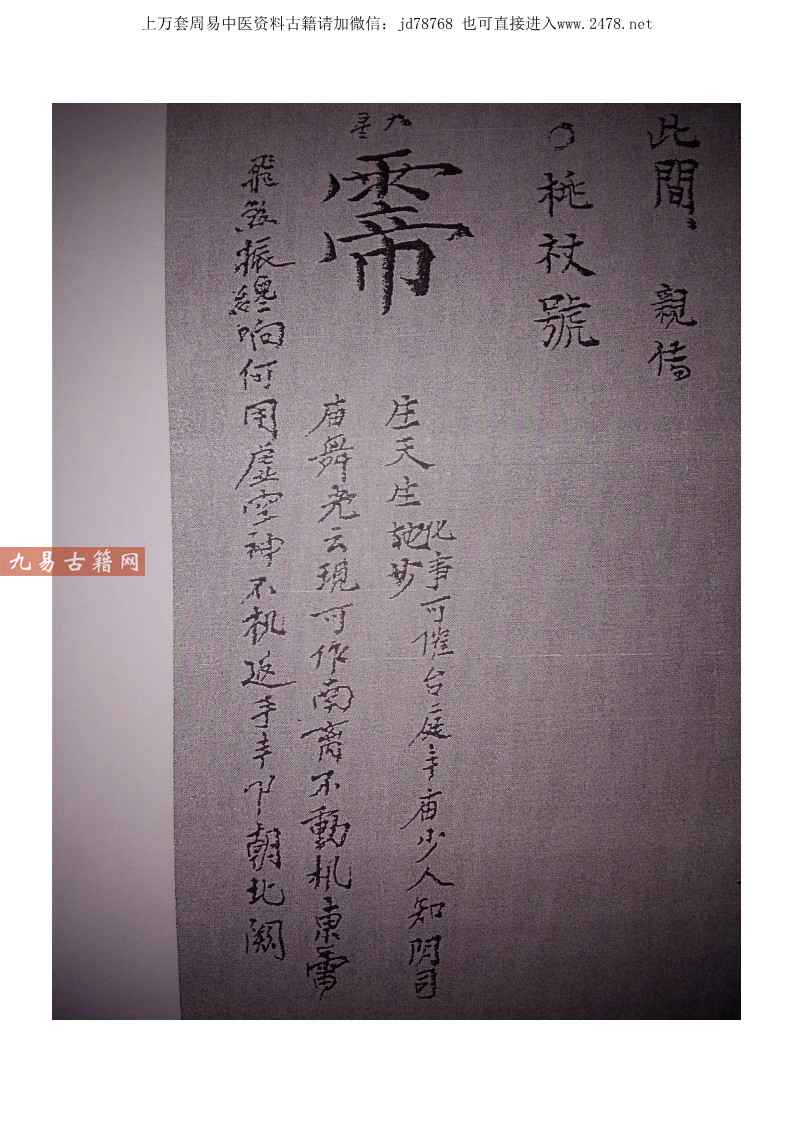 上万套周易中医资料古籍请加微信: jd78768 也可直接进入www.2478.net
此間 親传
○桃杖號
庄天庄地妙
此事可催台庭手庙少人知閉司
九星
庙舞老云現可作南离不動机東雷
飛 振 响何用虚空神不机返手 朝北阙
九易古籍网